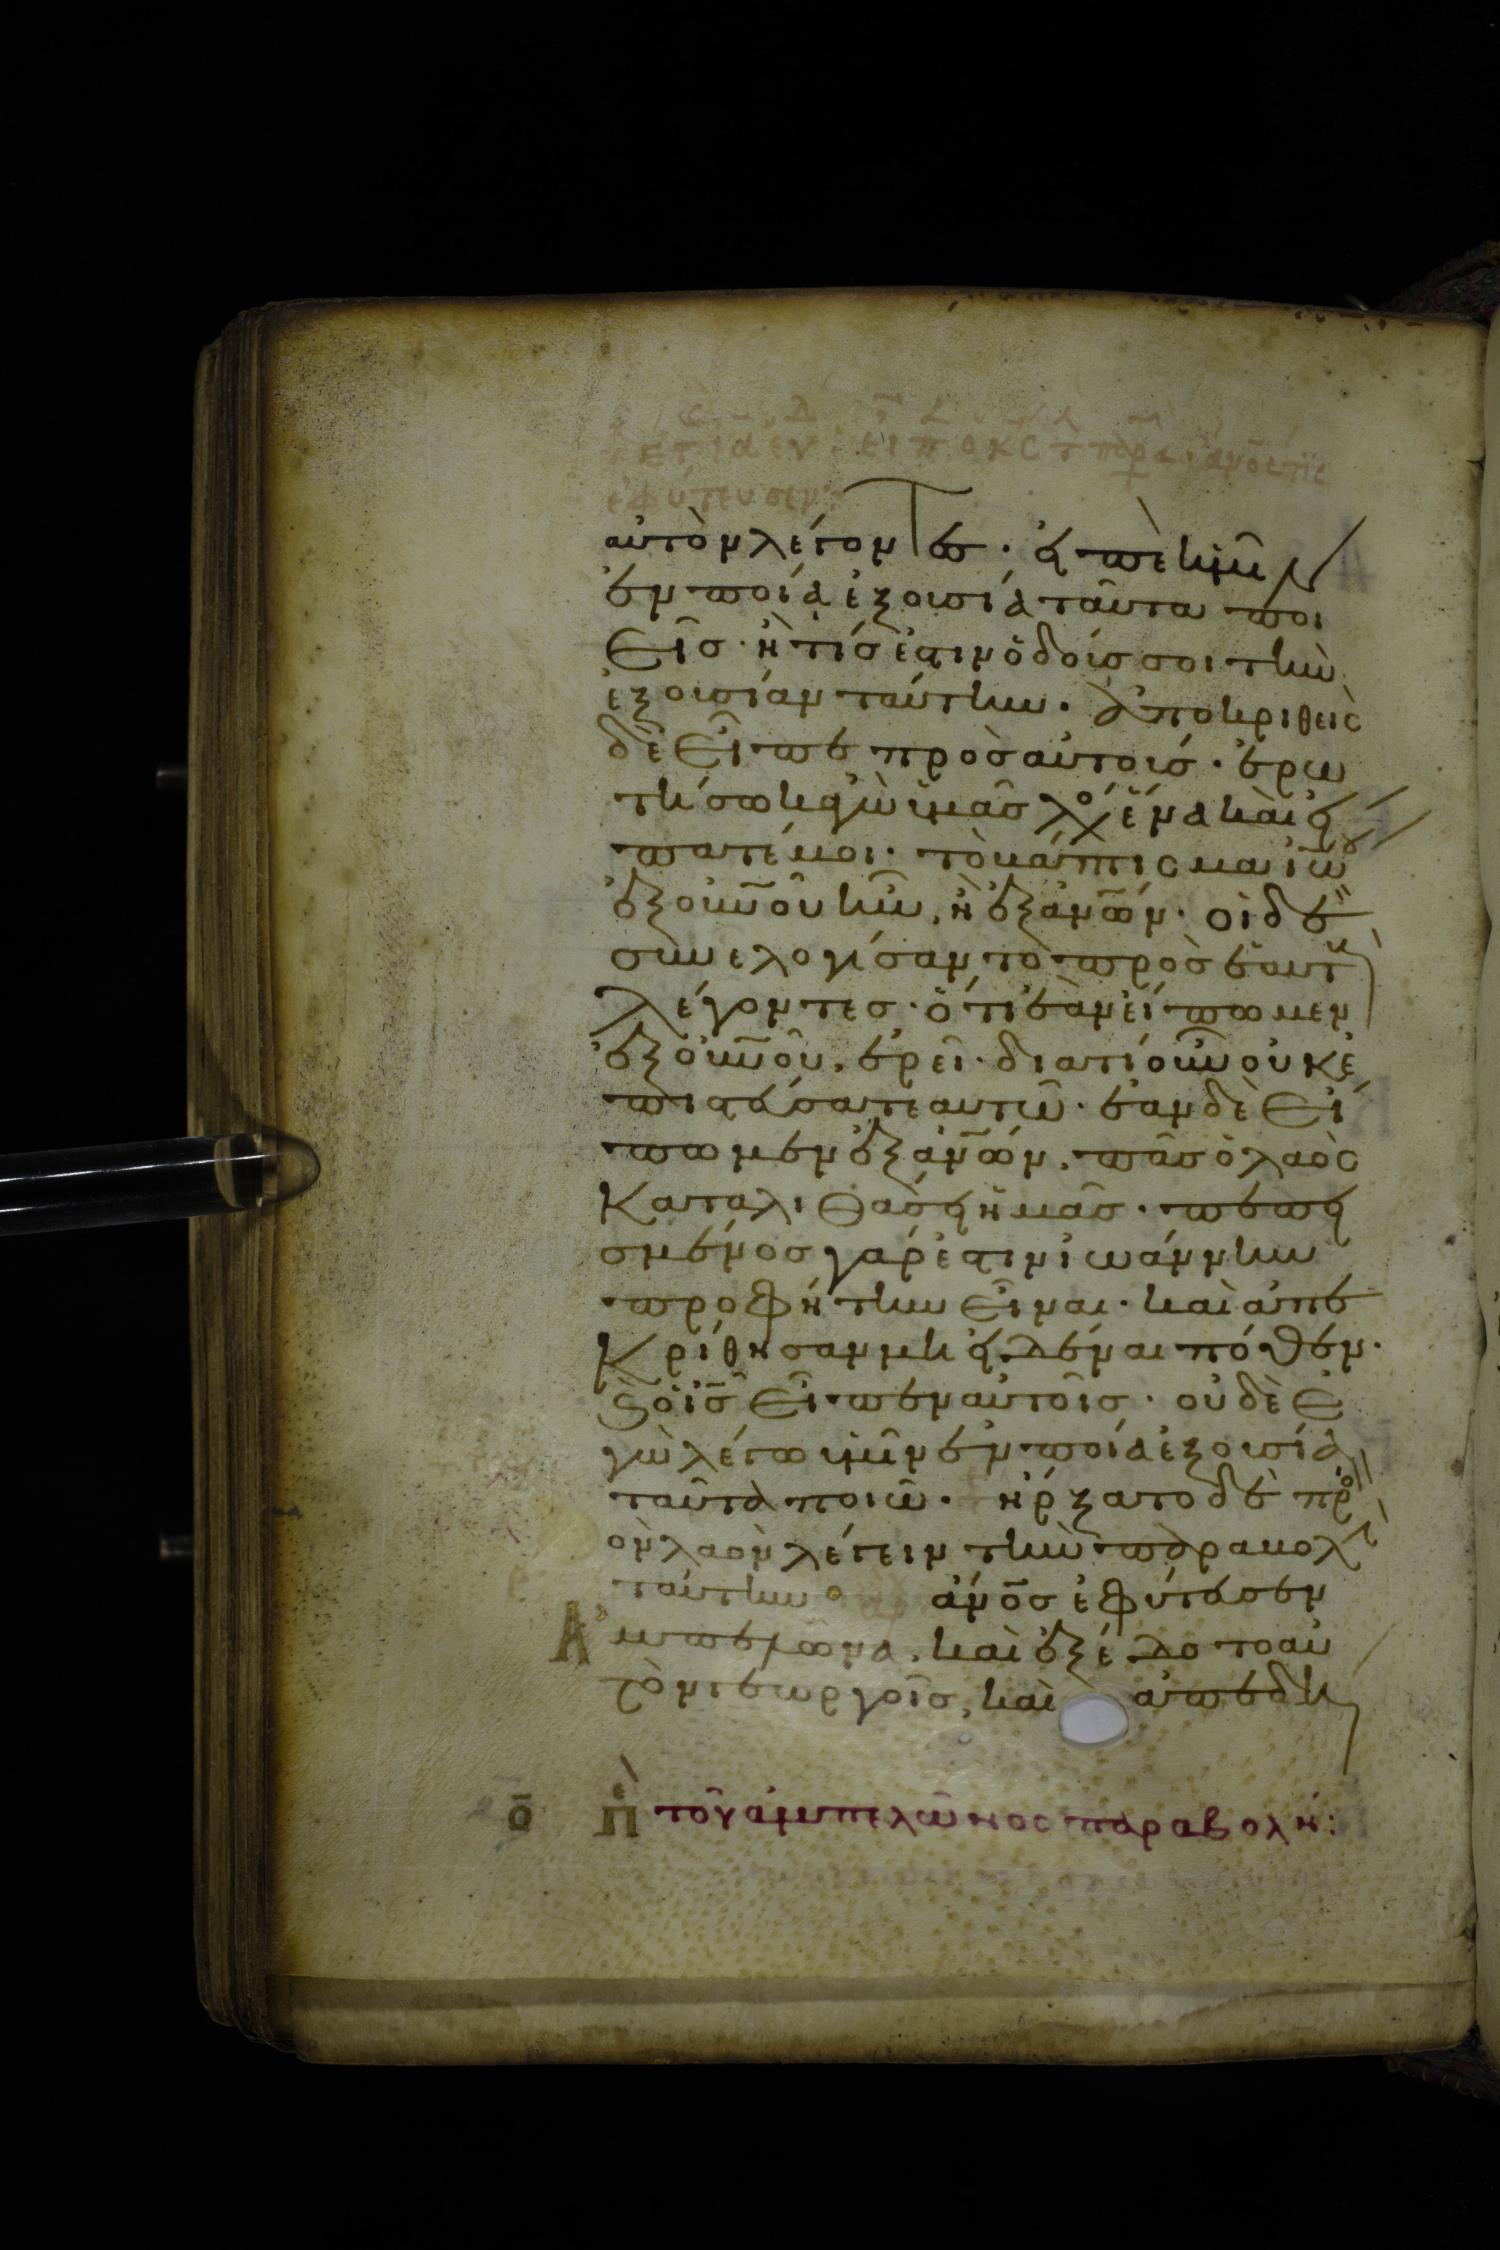 ἐφύτευσεν
αὐτὸν λέγοντες· εἰπὲ ἡμῖν
ἐν ποία ἐξουσία ταῦτα ποι
εῖς· ἢ τίς ἐστιν ὁ δούς σοι τὴν
ἐξουσίαν ταύτην. ἀποκριθεὶς
δὲ εἶπε πρὸς αὐτούς· ἐρω
τήσω κἀγὼ ὑμᾶς λόγ ἕνα καὶ εἴ
πατέ μοι· τὸ βάπτισμα ἰῶ
ἐξ οὐνοῦ ἦν, ἢ ἐξ ἀνῶν· οἱ δὲ
συνελογίσαντο πρὸς ἑαυτ
λέγοντες· ὅτι ἐὰν εἴπωμεν
ἐξ οὐνοῦ, ἐρεῖ· διατί οὖν οὐκ ἐ
πιστεύσατε αυτῶ· ἐὰν δὲ εἴ
πωμεν ἐξ ἀνῶν, πᾶς ὁ λαὸς
καταλιθάσει ἡμᾶς· πεπει
σμένος γάρ ἐστιν ἰωάννην
προφήτην εἶναι· καὶ ἀπε
κρίθησαν μὴ εἰδέναι πόθεν·
καὶ ὁ ις εἶπεν αὐτοῖς· οὐδὲ ἐ
γὼ λέγω ὑμῖν ἐν ποία ἐξουσία
ταῦτα ποιῶ· ἤρξατο δὲ πρ
ὸν λαὸν λέγειν τὴν παραβολ
ταύτην ἀνος ἐφύτευσεν
ἀμπελῶνα, καὶ ἐξέδοτο αὐ
τὸν γεωργοῖς, καὶ ἀπεδή
ο π τοῦ ἀμπελῶνος παραβολή: